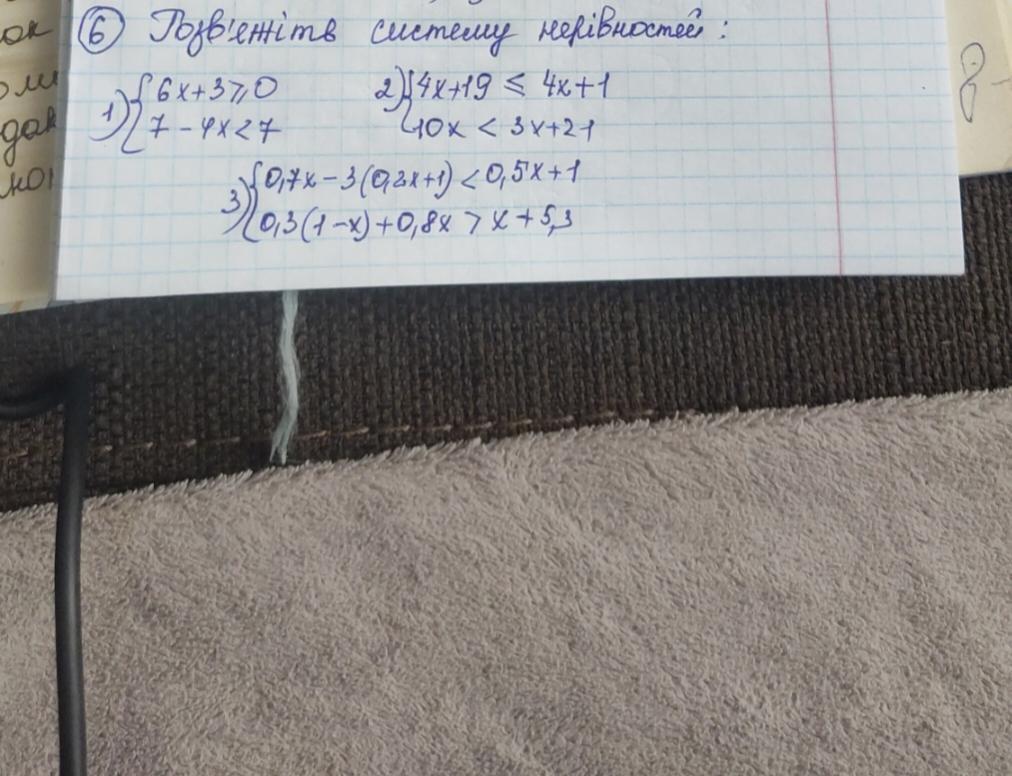 ок
6 Розв'яжіть систему нерівностей:
1) { 6x+3≥0
7-4x<7
2) { 4x+19 ≤ 4x+1
10x < 3x+21
3) { 0,7x-3(0,2x+1)<0,5x+1
0,3(1-x)+0,8x > x+5,3
дак
8-